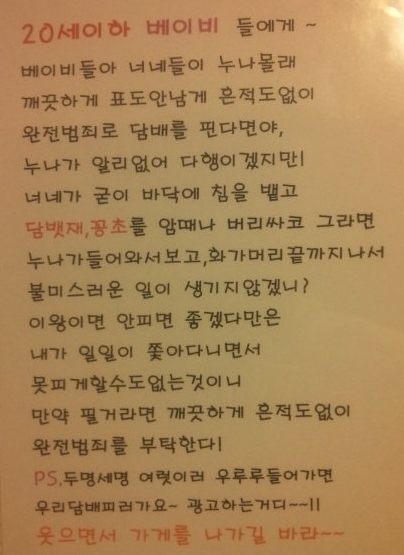 20세이하 베이비 들에게 ~
베이비들아 너네들이 누나몰래
깨끗하게 표도안남게 흔적도없이
완전범죄로 담배를 핀다면야,
누나가 알리없어 다행이겠지만!
너네가 굳이 바닥에 침을 뱉고
담뱃재,꽁초를 암때나 버리싸코 그라면
누나가들어와서보고,화가머리끝까지나서
불미스러운 일이 생기지않겠니?
이왕이면 안피면 좋겠다만은
내가 일일이 쫓아다니면서
못피게할수도없는것이니
만약 필거라면 깨끗하게 흔적도없이
완전범죄를 부탁한다!
PS.두명세명 여럿이러 우루루들어가면
우리담배피러가요~ 광고하는거디~~!!
웃으면서 가게를 나가길 바라~~